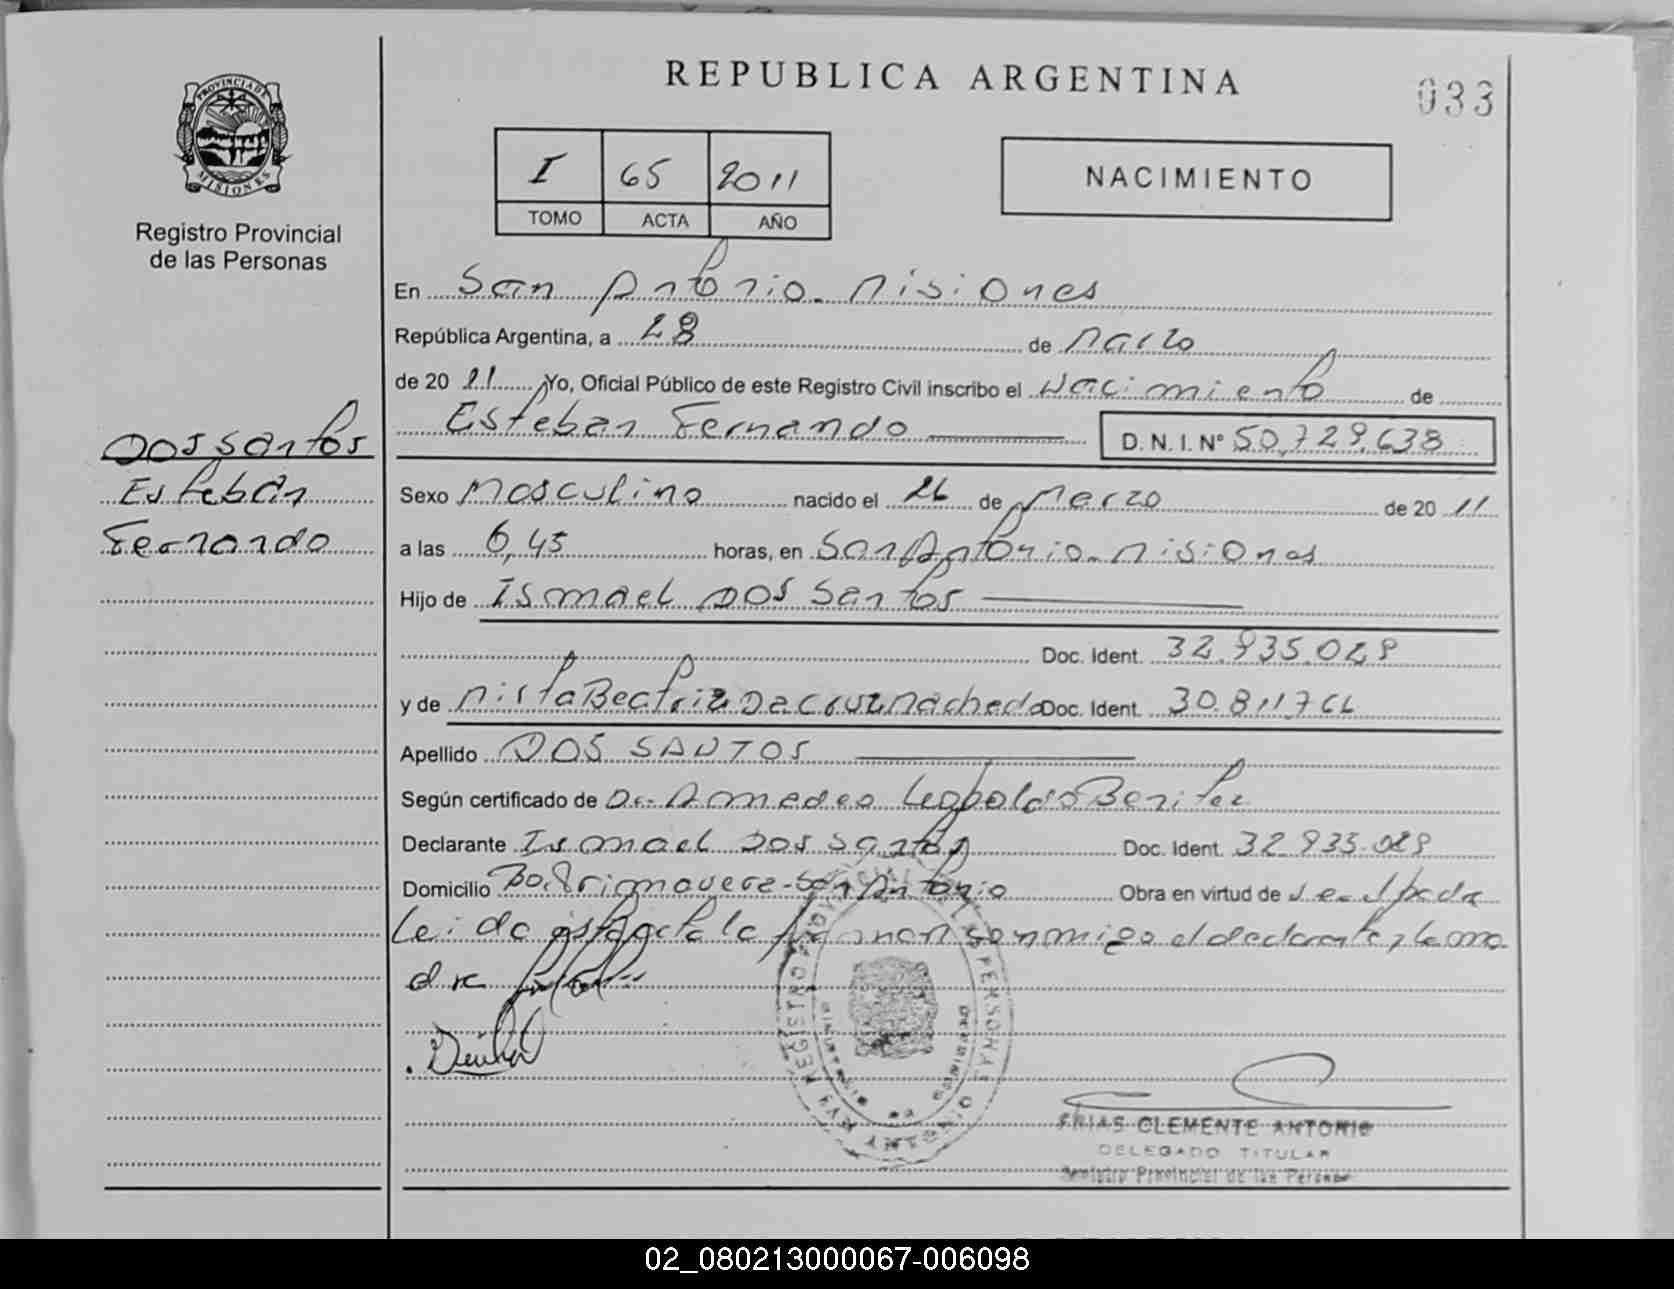 REPUBLICA ARGENTINA
033
PROVINCIA DE MISIONES
Registro Provincial
de las Personas
I 65 2011
TOMO ACTA AÑO
NACIMIENTO
En San Antonio - Misiones
República Argentina, a 28 de Marzo
de 20 11 Yo, Oficial Público de este Registro Civil inscribo el Nacimiento de
Esteban Fernando D. N. I. N° 50.729.638
Dos Santos
Esteban
Fernando
Sexo Masculino nacido el 26 de Marzo de 20 11
a las 6,45 horas, en San Antonio - Misiones
Hijo de Ismael Dos Santos
Doc. Ident. 32.935.029
y de Mirta Beatriz Da Cruz Machado Doc. Ident. 30.811.766
Apellido DOS SANTOS
Según certificado de Dr. Amedeo Leopoldo Benitez
Declarante Ismael Dos Santos Doc. Ident. 32.935.029
Domicilio Bo. Primavera - San Antonio Obra en virtud de
Leida esta acta la firman conmigo el declarante y la ma
dre
REGISTRO PROVINCIAL DE LAS PERSONAS
FRIAS CLEMENTE ANTONIO
DELEGADO TITULAR
Registro Provincial de las Personas
02_080213000067-006098